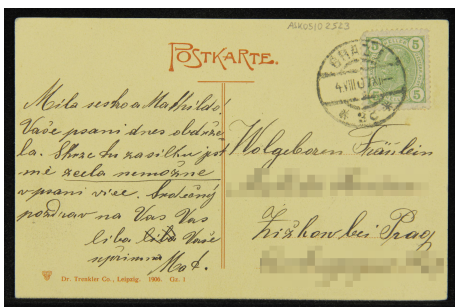 ALKUSIO 2523
POSTKARTE.
GRAZ 1
5 5
Milá sestro a Mathildo!
Vaše psaní dnes obdrže-
la. Skrze tu zasilku jest
mě zcela nemožne
v psani více. Srdečný
pozdrav na Vas Vas
liba liba Vaše
upřimna
Mat.
Wolgeboren Fräulein
Žižkow bei Prag
Dr. Trenkler Co., Leipzig. 1906. Gz. 1